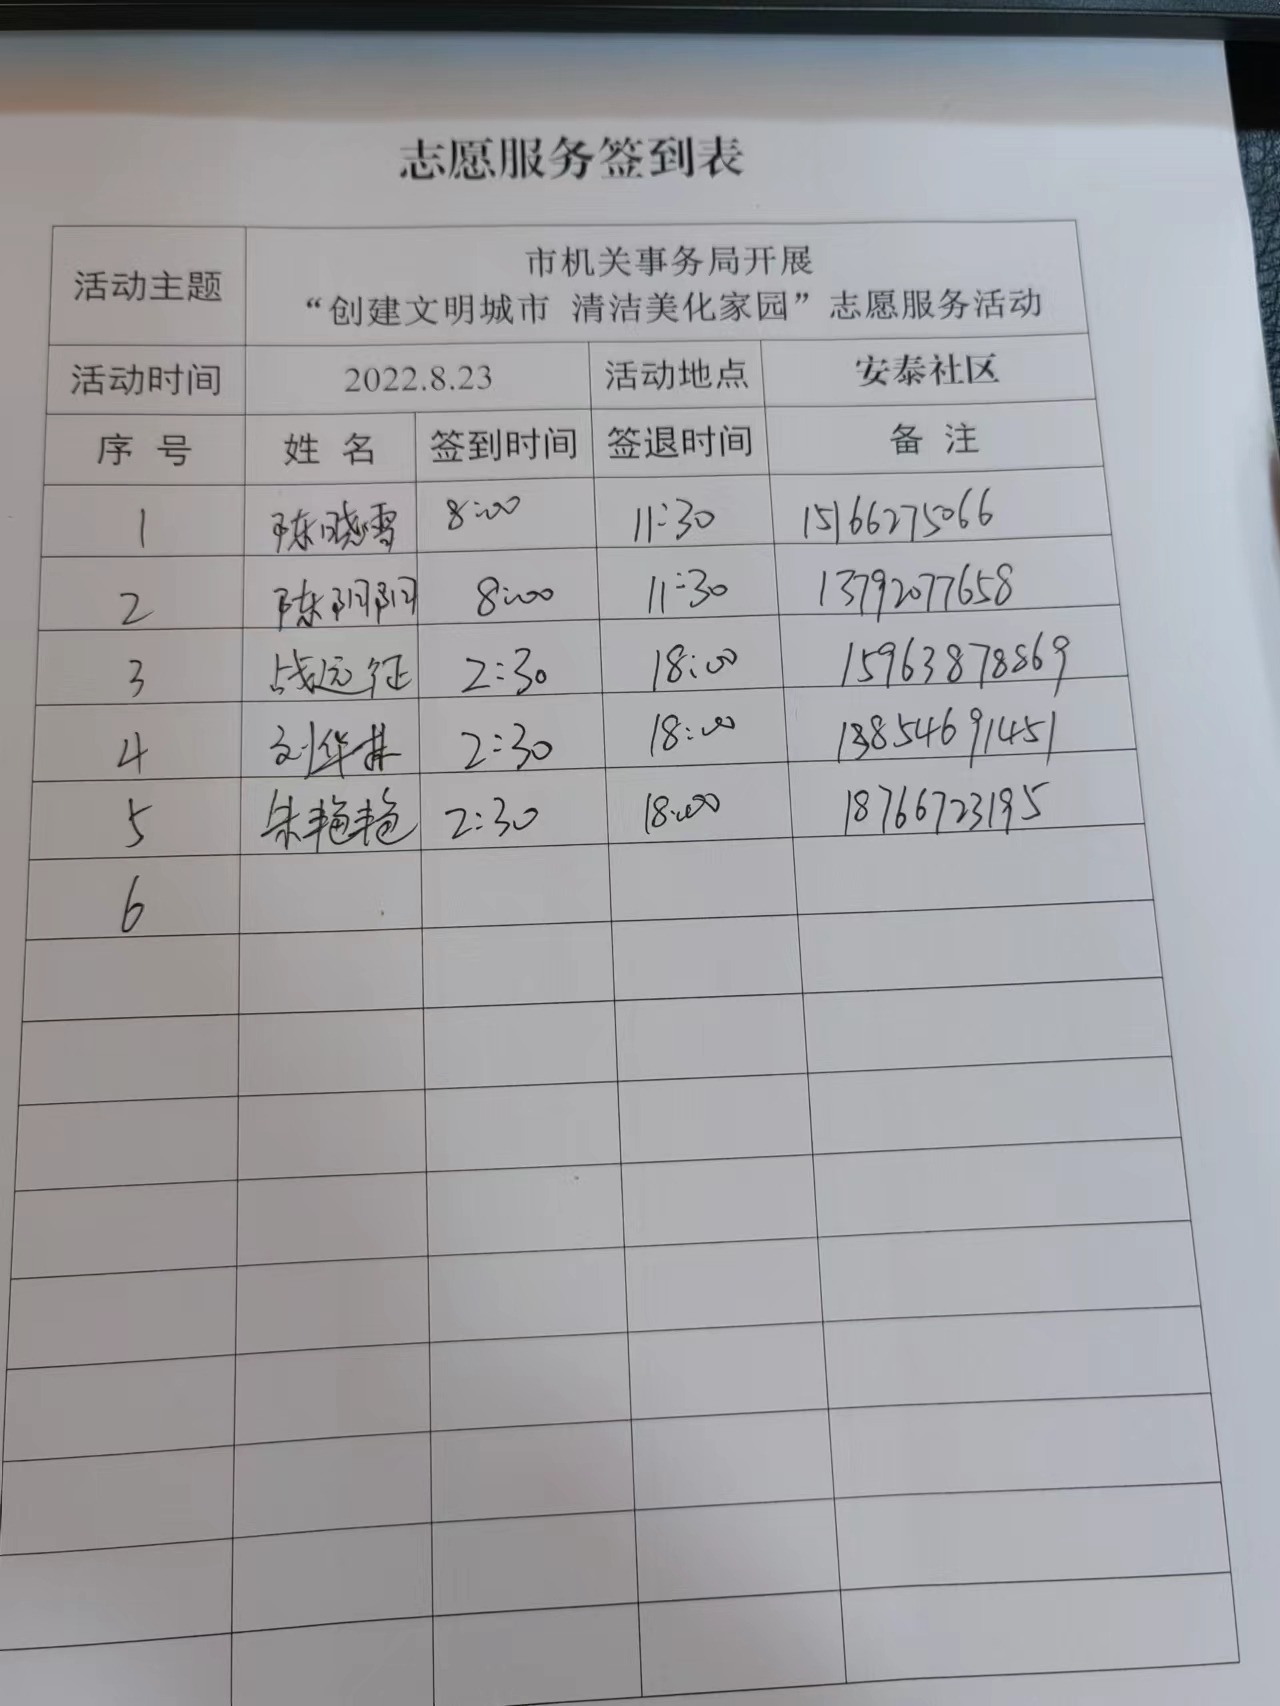 志愿服务签到表
活动主题 市机关事务局开展
“创建文明城市 清洁美化家园”志愿服务活动
活动时间 2022.8.23 活动地点 安泰社区
序 号 姓 名 签到时间 签退时间 备 注
1 陈晓雪 8:00 11:30 15166275066
2 陈阴阴 8:00 11:30 13792077658
3 战远征 2:30 18:00 15963878869
4 刘华 2:30 18:00 13854691451
5 朱艳艳 2:30 18:00 18766723195
6